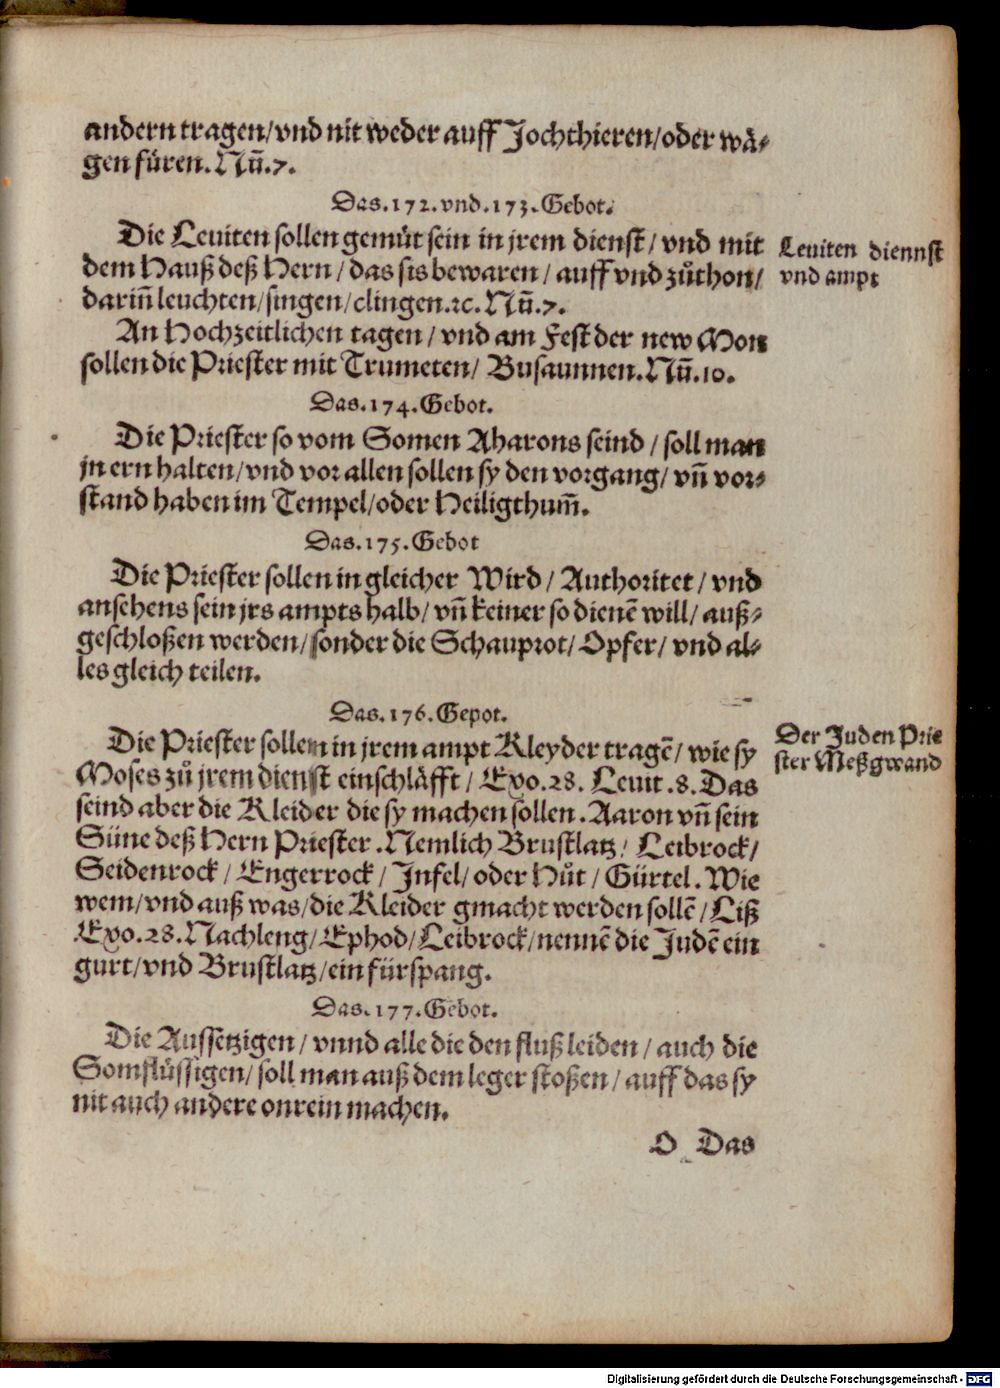 andern tragen/vnd nit weder auff Jochthieren/oder wä⸗
gen füren.Nũ.7.
Das.172.vnd.173.Gebot.
Die Leuiten sollen gemüt sein in jrem dienst/ vnd mit
dem Hauß deß Hern/das sis bewaren/auff vnd zůthon/
dariñ leuchten/singen/clingen.ꝛc.Nũ.7.
Leuiten diennst
vnd ampt
An Hochzeitlichen tagen/vnd am Fest der new Mon
sollen die Priester mit Trumeten/ Busaunnen.Nũ.10.
Das.174.Gebot.
Die Priester so vom Somen Aharons seind/soll man
jn ern halten/vnd vor allen sollen sy den vorgang/ vñ vor⸗
stand haben im Tempel/oder Heiligthum̃.
Das.175.Gebot
Die Priester sollen in gleicher Wird/ Authoritet/vnd
ansehens sein jrs ampts halb/vñ keiner so dienẽ will/auß⸗
geschloßen werden/sonder die Schauprot/Opfer/ vnd al⸗
les gleich teilen.
Das.176.Gepot.
Die Priester sollen in jrem ampt Kleyder tragẽ/wie sy
Moses zů jrem dienst einschläfft/ Exo.28. Leuit.8.Das
seind aber die Kleider die sy machen sollen.Aaron vñ sein
Süne deß Hern Priester.Nemlich Brustlatz/ Leibrock/
Seidenrock/ Engerrock/ Infel/oder Hůt/ Gürtel.Wie
wem/vnd auß was/die Kleider gmacht werden sollẽ/Liß
Exo.28.Nachleng/Ephod/Leibrock/nennẽ die Judẽ ein
gurt/vnd Brustlatz/ein fürspang.
Der Juden Prie
ster Meßgwand
Das.177.Gebot.
Die Aussetzigen/ vnnd alle die den fluß leiden/auch die
Somflüssigen/soll man auß dem leger stoßen/auff das sy
nit auch andere onrein machen.
O Das
Digitalisierung gefördert durch die Deutsche Forschungsgemeinschaft - DFG